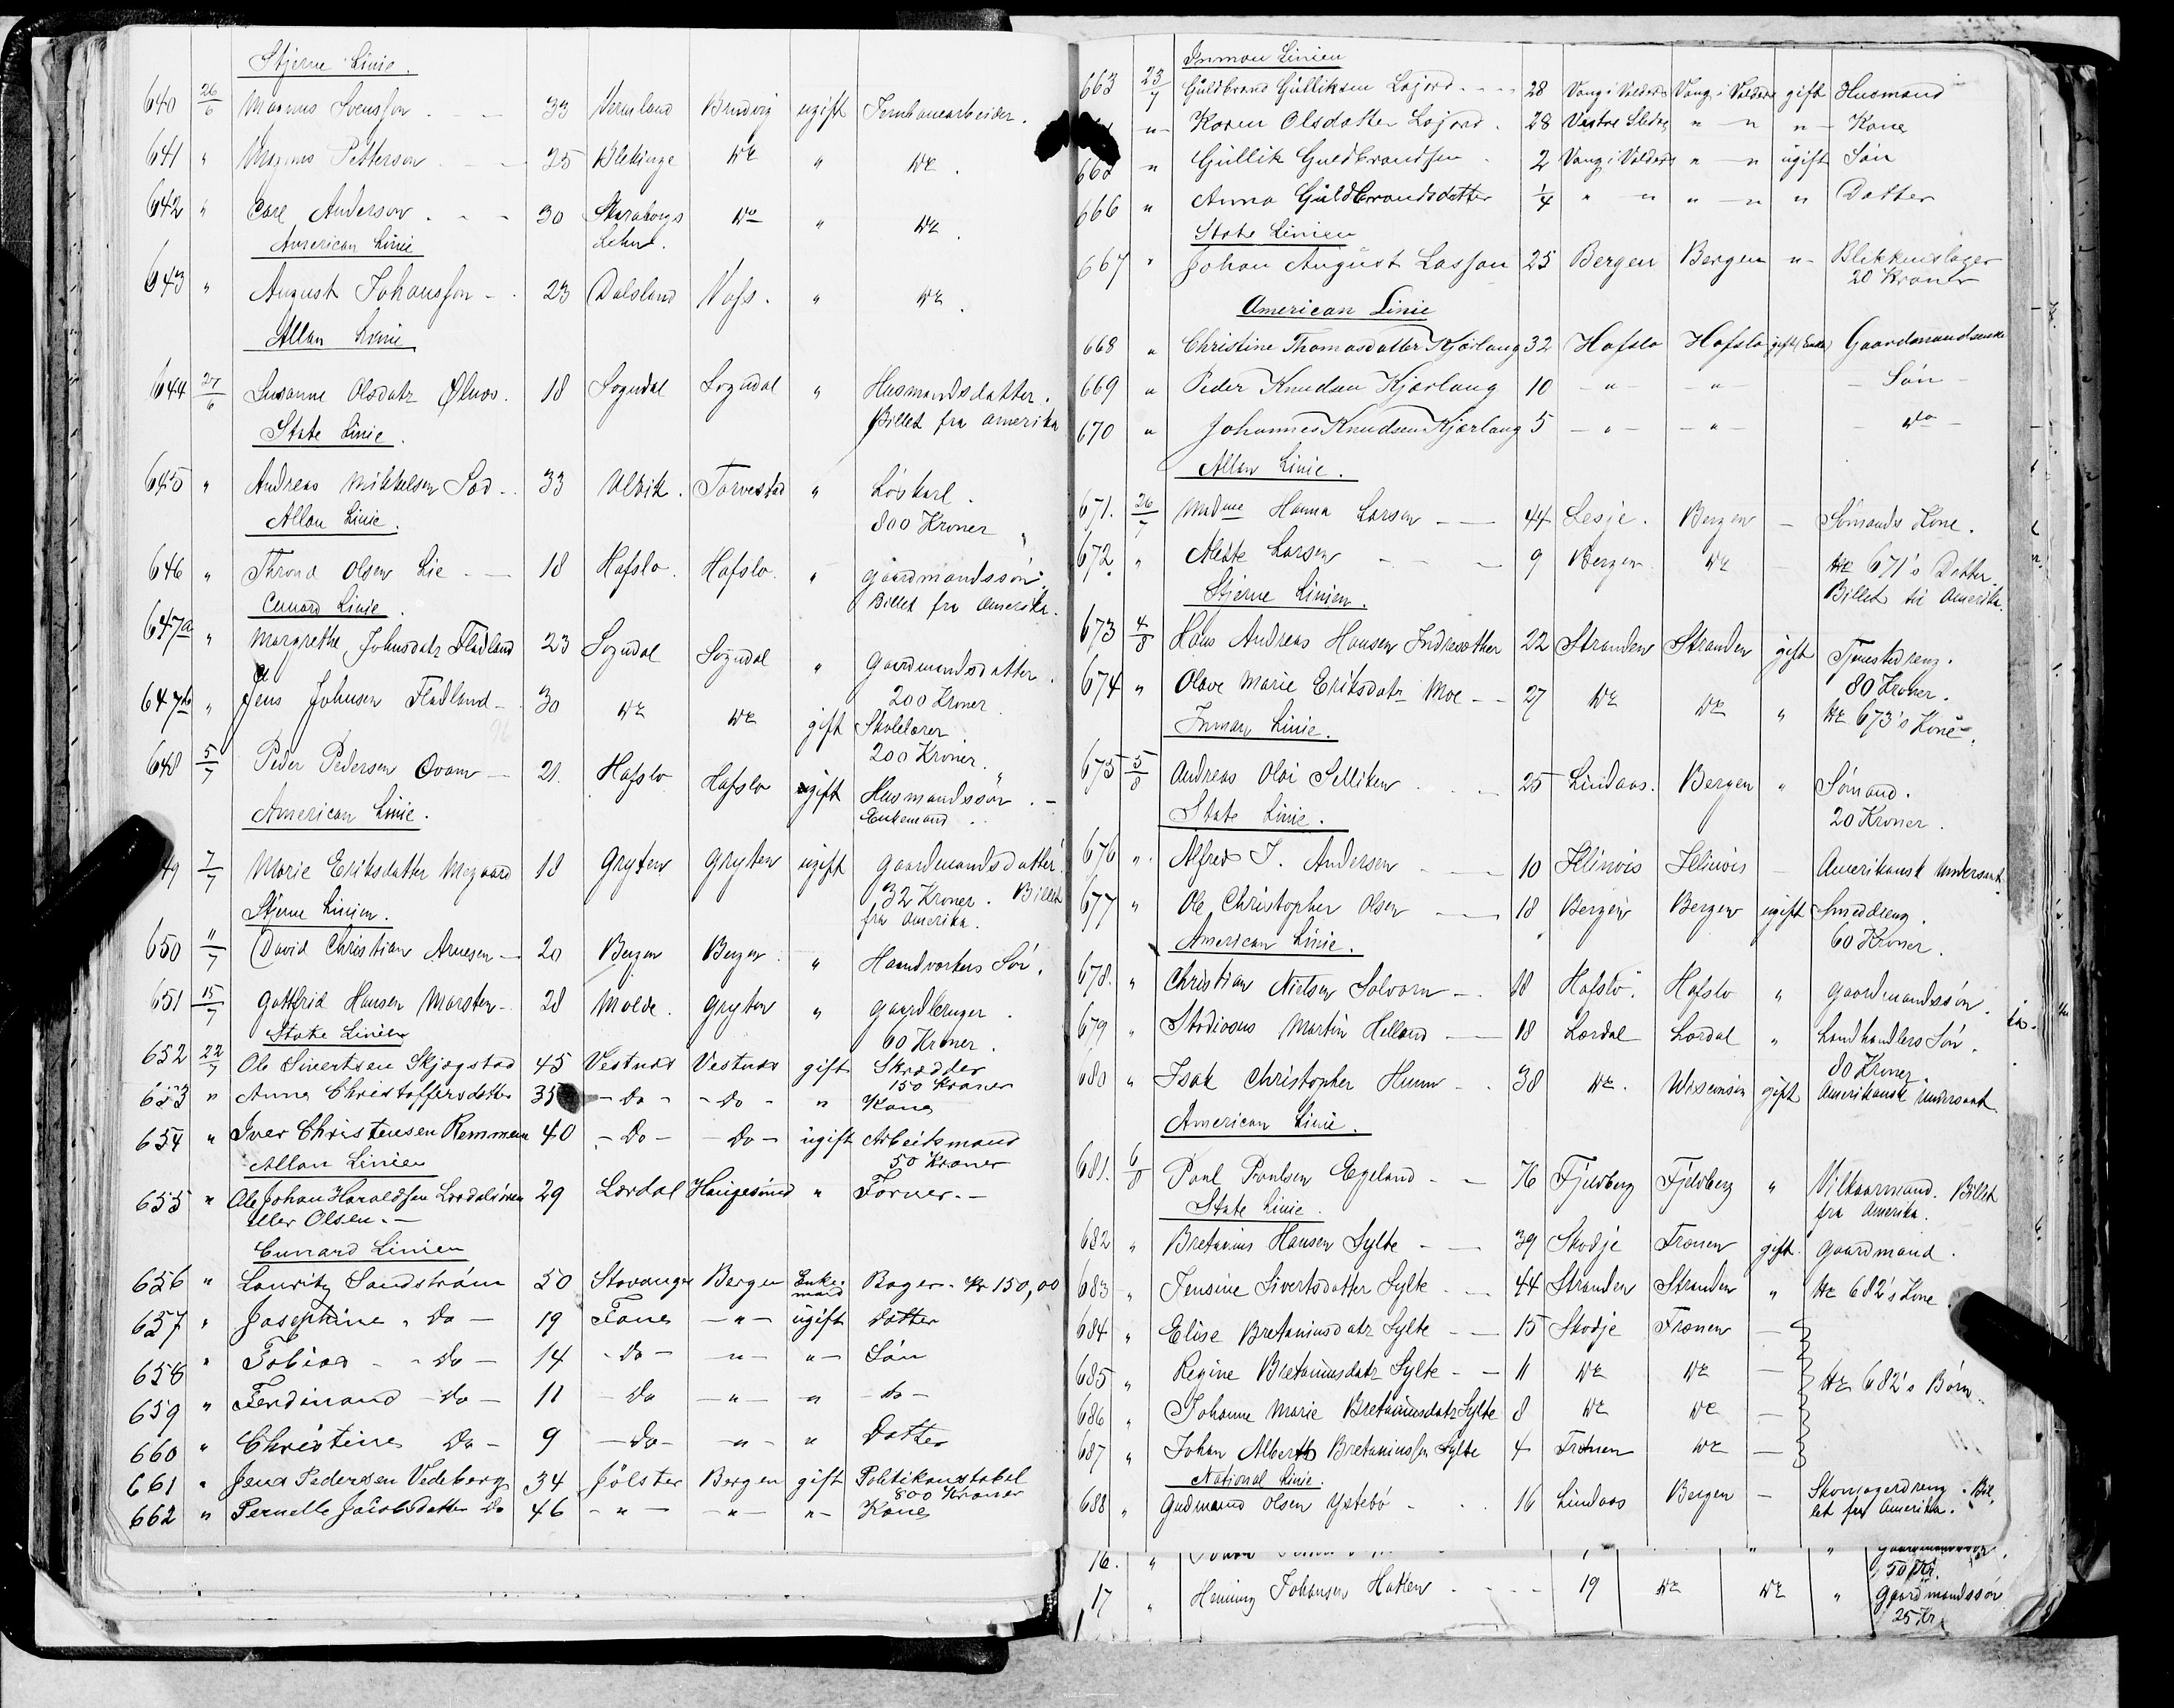 Stjerne Linie.
640 26/6 Magnus Svensson 33 Vermland Brudvig ugift Jernbanearbeider.
641 " Magnus Petterson 25 Blekinge do " do.
642 " Carl Anderson 30 Skaraborgs do " do.
American Linie Lehn.
643 " August Johansson 23 Dalsland Voss. " do.
Allan Linie
644 27/6 Susanne Olsdatr 18 Sogndal Sogndal " Husmandsdatter.
Billet fra Amerika
State Linie.
645 " Andreas Mikkelsen 33 Ulvik. Torvestad " Løskarl.
Allan Linie. 800 Kroner "
646 " Thrond Olsen Lie 18 Hafslo. Hafslo. " Gaardmandssøn.
Cunard Linie. Billet fra Amerika.
647a " Margrethe Johnsdatr Fladland 23 Sogndal Sogndal " Gaardmandsdatter.
200 Kroner
647b " Jens Johnsen Fladland 30 do do gift Skolelærer
200 Kroner.
648 5/7 Peder Pedersen Qvam 21. Hafslo Hafslo ugift Husmandssøn. -
American Linie. Enkemand
49 7/7 Marie Eriksdatter 18 Gryten Gryten ugift Gaardmandsdatter
Stjerne Linien. 32 Kroner. Billet
fra Amerika.
650 11/7 David Christian Arnesen 20 Bergen Bergen " Haandværkers Søn.
651 15/7 Gottfrid Hansen Marsten 28 Molde. Gryten " Gaardbruger.
State Linien 60 Kroner.
652 22/7 Ole Sivertsen Skjegstad 45 Vestnæs Vestnæs gift Skrædder
150 Kroner
653 " Anna Christoffersdatter 35 - Do - - Do - " Kone
654 " Iver Christensen Remmem 40 - Do - - Do - ugift Arbeidsmand
Allan Linien 50 Kroner
655 " Ole Johan Haraldsen Lærdalsøren 29 Lærdal Haugesund " Farver. -
eller Olsen. -
Cunard Linien
656 " Lauritz Sandstrøm 50 Stavanger Bergen Enke- Bager. Kr 150,00
mand
657 " Josephine Do - 19 Fane - " - ugift Datter
658 " Tobias - Do - 14 - Do - - " - " - Søn
659 " Ferdinand - Do - 11 - Do - " - " - do -
660 " Christine Do - 9 - Do - - " - " Datter
661 " Jens Pedersen Vedeberg 34 Jölster Bergen gift Politikonstabel
800 Kroner
662 " Pernelle Jacobsdatter Do 46 - " - - " - " - Kone
Inman Linien
663 23/7 Guldbrand Gulliksen Lojord 28 Vang i Valders Vang i Valders gift Husmand
" - Karen Olsdatter Lojord. 28 Vestre Slidre " - " " - Kone
665 " Gullik Guldbrandsen 2 Vang i Valders " - " ugift Søn
666 " Anna Guldbrandsdatter 1/4 " - " " - " " Datter
State Linien
667 " Johan August Lassen 25 Bergen Bergen " - Blikkenslager
20 Kroner
American Linie
668 " Christine Thomasdatter Kjærlaug 32 Hafslo Hafslo gift (Enke) Gaardmandsenke
669 " Peder Knudsen Kjærlaug 10 - " - - " - - Søn -
670 " Johannes Knudsen Kjærlaug 5 - " - - " - - do -
Allan Linie.
671. 26/7 Madme Hanna Larsen 44 Lesje. Bergen - Sømands Kone.
672. " Larsen 9 Bergen do - No 671's Datter.
Stjerne Linien. Billet til Amerika.
673 4/8 Hans Andreas Hansen 22 Stranden Stranden gift Tjenestedreng.
80 Kroner.
674 " Olave Marie Eriksdatr Moe 27 do do " No 673's Kone.
Inman Linie.
675 5/8 Andreas Olai 25 Lindaas. Bergen " Sømand.
State Linie. 20 Kroner.
676 " Alfred J. Andersen 10 Illinois Illinois - Amerikansk Undersaat.
677 " Ole Christopher Olsen 18 Bergen Bergen ugift Smeddreng.
American Linie. 60 Kroner.
678. " Christian Nielsen Solvorn 18 Hafslo. Hafslo " Gaardmandssøn.
679 " Martin Helland 18 Lærdal Lærdal " Landhandlers Søn.
80 Kroner.
680 " Isak Christopher 38 do. Wisconsin gift Amerikansk Undersaat.
American Linie.
681. 6/8 Paul Paulsen Egeland 76 Fjeldberg Fjeldberg " Vilkaarmand. Billet
State Linie. fra Amerika.
682 " Bretanius Hansen Sylte 39 Skodje Frænen gift. Gaardmand.
683 " Jensine Sivertsdatter Sylte 44 Stranden Stranden " No 682's Kone
684 " Elise Bretaniusdatr Sylte 15 Skodje Frænen -
685 " Regine Bretaniusdatr Sylte 11 do do - No 682's Børn.
686 " Johanne Marie Bretaniusdatr Sylte 8 do do -
687 " Johan Albert Bretaniussen Sylte 4 Frænen do -
National Linie.
688 " Gudmund Olsen Ystebø 16 Lindaas Bergen - Skomagerdreng. Bil,
let fra Amerika.
16. "
50 Kr.
17 " Henning Johansen 19 do do " Gaardmandssøn
25 Kr